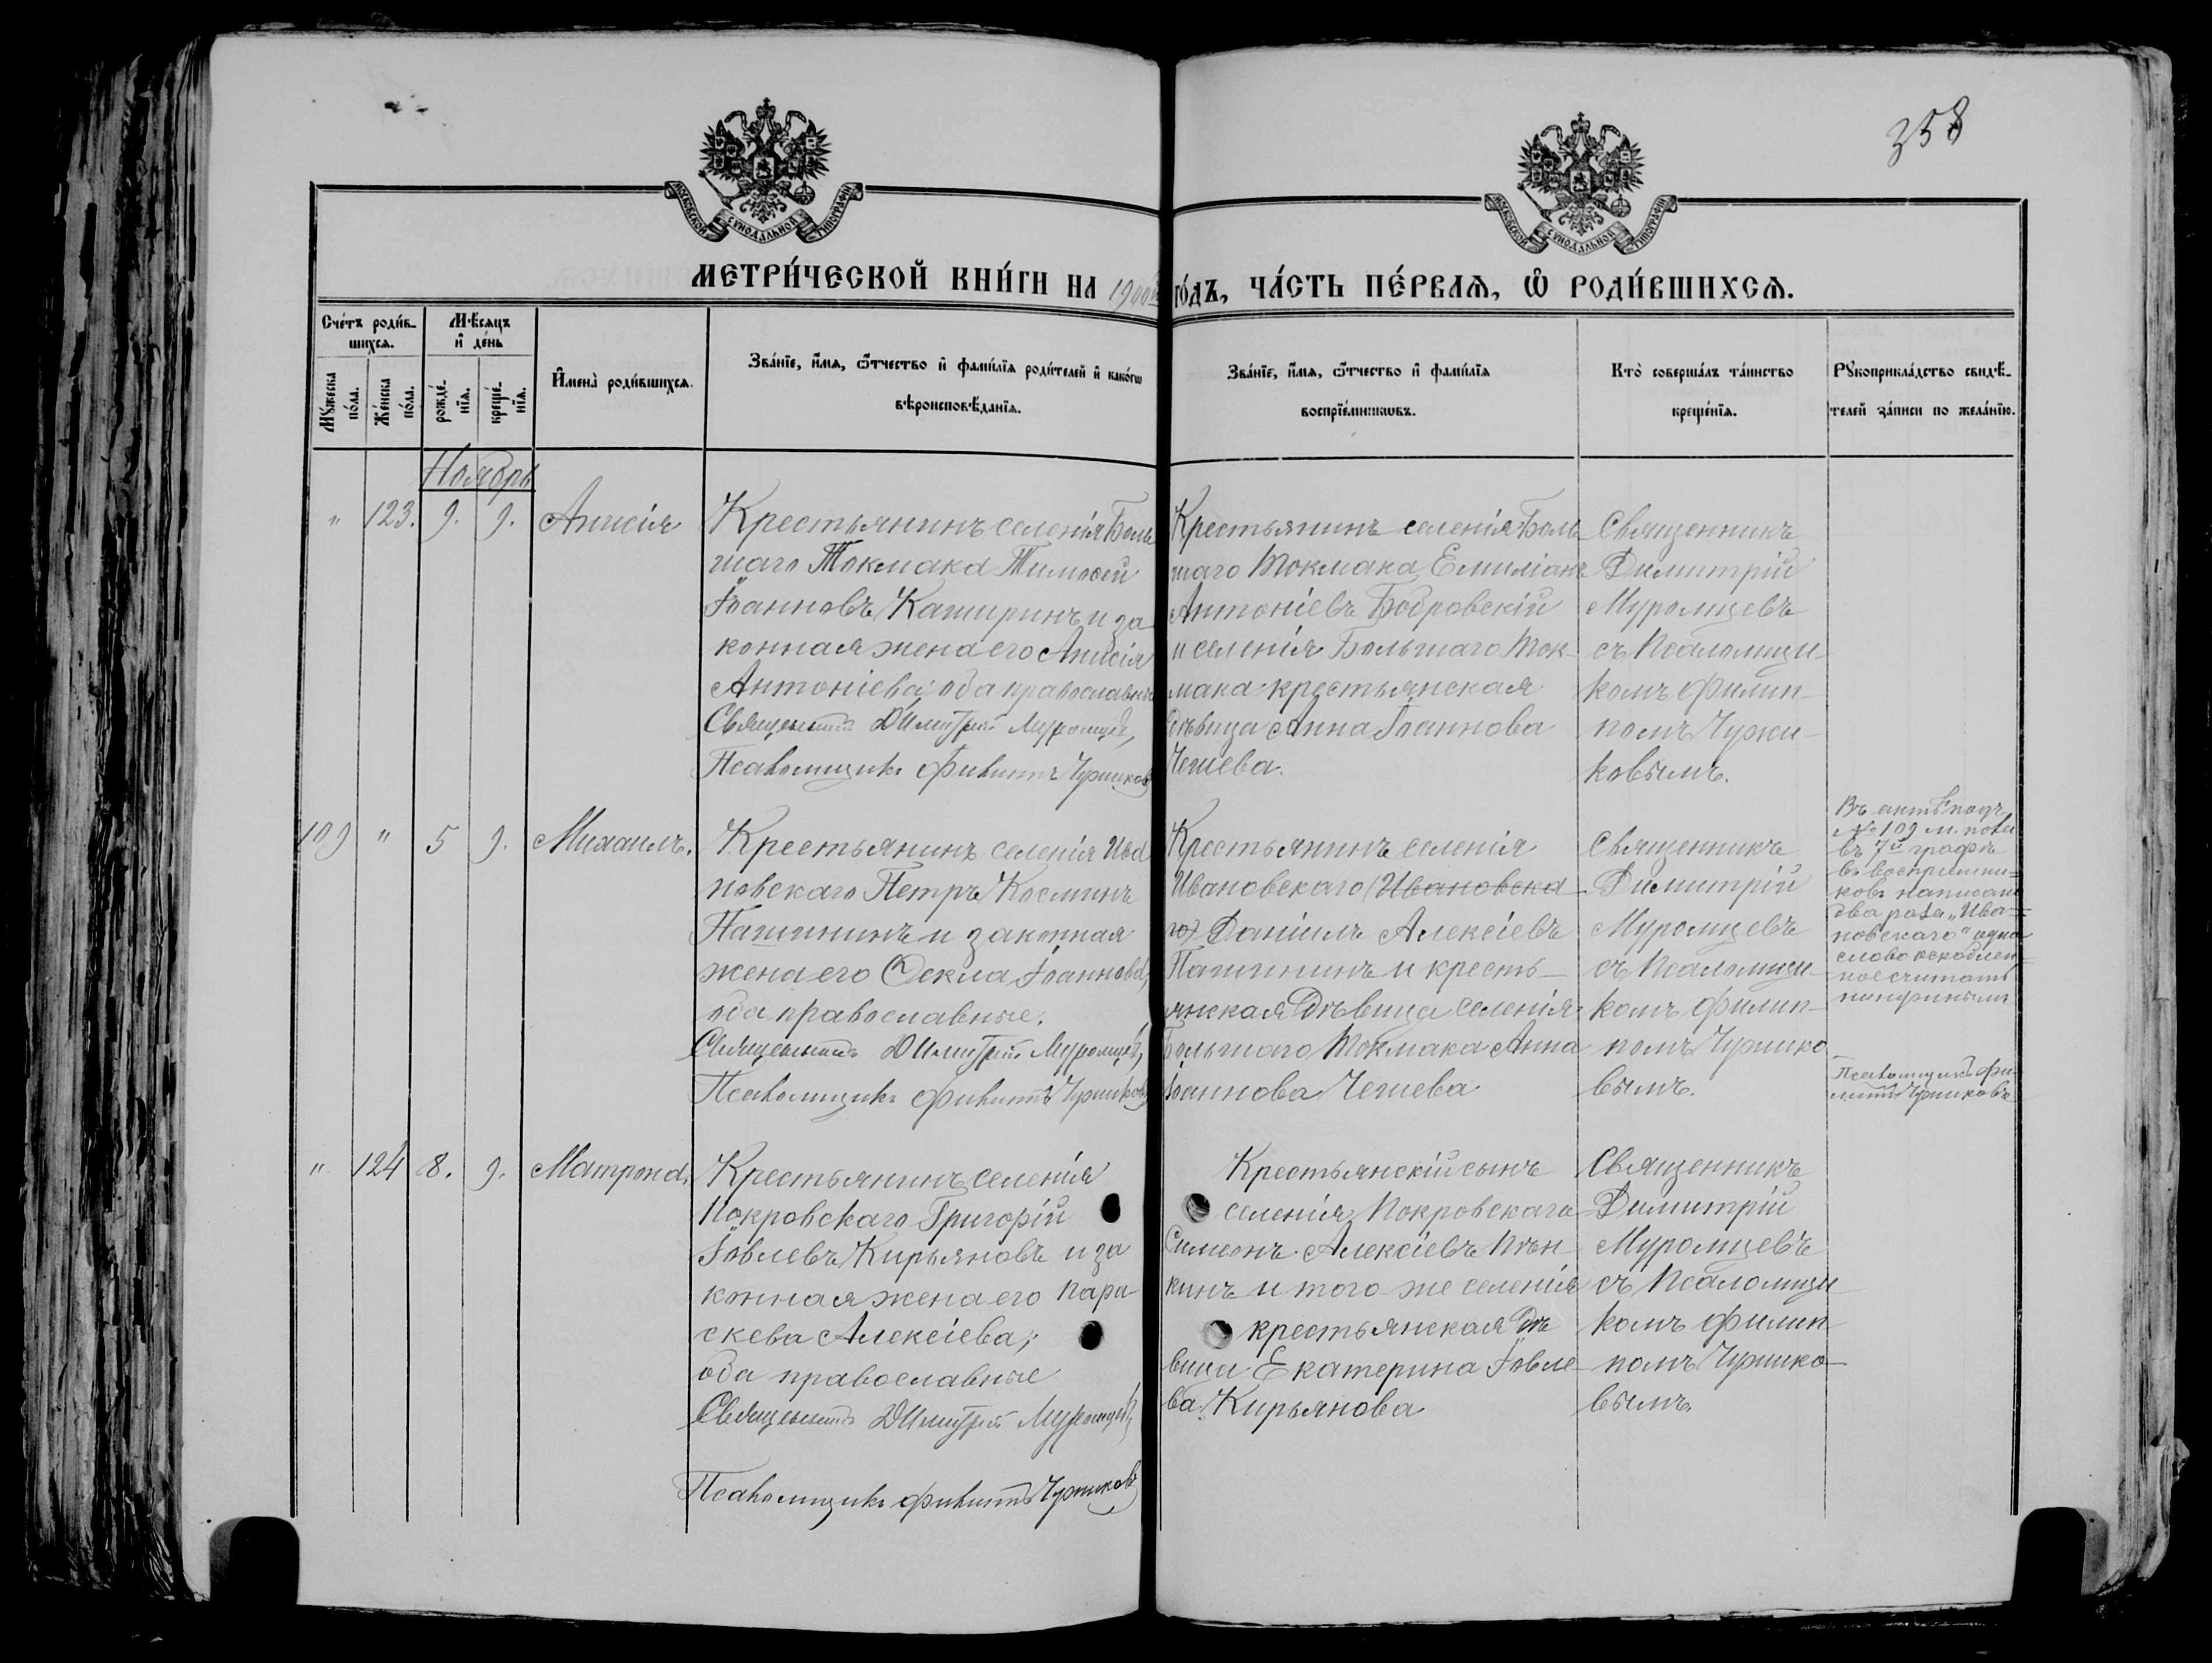 358
МОСКОВСКОЙ СУНОДАЛЬНОЙ ТИПОГРАФІИ
МОСКОВСКОЙ СУНОДАЛЬНОЙ ТИПОГРАФІИ
МЕТРИ́ЧЕСКОЙ КНИ́ГИ НА 1900й ГО́ДЪ, ЧА́СТЬ ПЕ́РВАЯ, Ѡ РОДИ́ВШИХСЯ.
Сче́тъ роди́в-
шихся.
Мѣ́сяцъ
и҆ де́нь
Мꙋ́жеска
по́ла.
Же́нска
по́ла.
рожде́-
нїя.
креще́-
нїя.
И҆мена̀ роди́вшихся.
Зва́нїе, и҆́мя, ѻ҆́тчество и҆ фами́лїя роди́телей и҆ како́гѡ
вѣроисповѣ́данїя.
Зва́нїе, и҆́мя, ѻ҆́тчество и҆ фами́лїя
воспрїе́мникѡвъ.
Кто̀ соверша́лъ та́инство
креще́нїя.
Рꙋкоприкла́дство свидѣ́-
телей за́писи по жела́нїю.
Ноябрь
" 123. 9. 9. Анисія
Крестьянинъ селенія Боль
шаго Токмака Тимоѳей
Іоанновъ Каширинъ и за
конная жена его Анисія
Антоніева; оба православные
Священникъ Димитрій Муромцевъ,
Псаломщикъ Филиппъ Чуриковъ
Крестьянинъ селенія Боль-
шаго Токмака Емиліанъ
Антоніевъ Бобровскій
и селенія Большаго Ток-
мака крестьянская
дѣвица Анна Іоаннова
Чешева.
Священникъ
Димитрій
Муромцевъ
съ Псаломщи-
комъ Филип-
помъ Чури-
ковымъ.
109 " 5 9. Михаилъ.
Крестьянинъ селенія Ива
новскаго Петръ Косминъ
Пашнинъ и законная
жена его Ѳекла Іоаннова,
оба православные.
Священникъ Димитрій Муромцевъ,
Псаломщикъ Филиппъ Чуриковъ
Крестьянинъ селенія
Ивановскаго (Ивановска-
го) Даніилъ Алексіевъ
Пашнинъ и кресть-
янская дѣвица селенія
Большаго Токмака Анна
Іоаннова Чешева
Священникъ
Димитрій
Муромцевъ
съ Псаломщи-
комъ Филип-
помъ Чурико-
вымъ.
Въ актѣ подъ
№ 109 м. пола
въ 7й графѣ
въ воспріемни=
ковъ написано
два раза „Ива=
новскаго" одно
слово оскоблен=
ное считать
Псаломщикъ Фи-
липпъ Чуриковъ
" 124 8. 9. Матрона.
Крестьянинъ селенія
Покровскаго Григорій
Іовлевъ Кирьяновъ и за
конная жена его Пара-
скева Алексіева;
оба православные
Священникъ Димитрій Муромцевъ,
Псаломщикъ Филиппъ Чуриковъ
Крестьянскій сынъ
селенія Покровскаго
Симеонъ Алексіевъ Пѣн-
кинъ и того-же селенія
крестьянская дѣ
вица Екатерина Іовле
ва Кирьянова
Священникъ
Димитрій
Муромцевъ
съ Псаломщи
комъ Филип-
помъ Чурико-
вымъ.